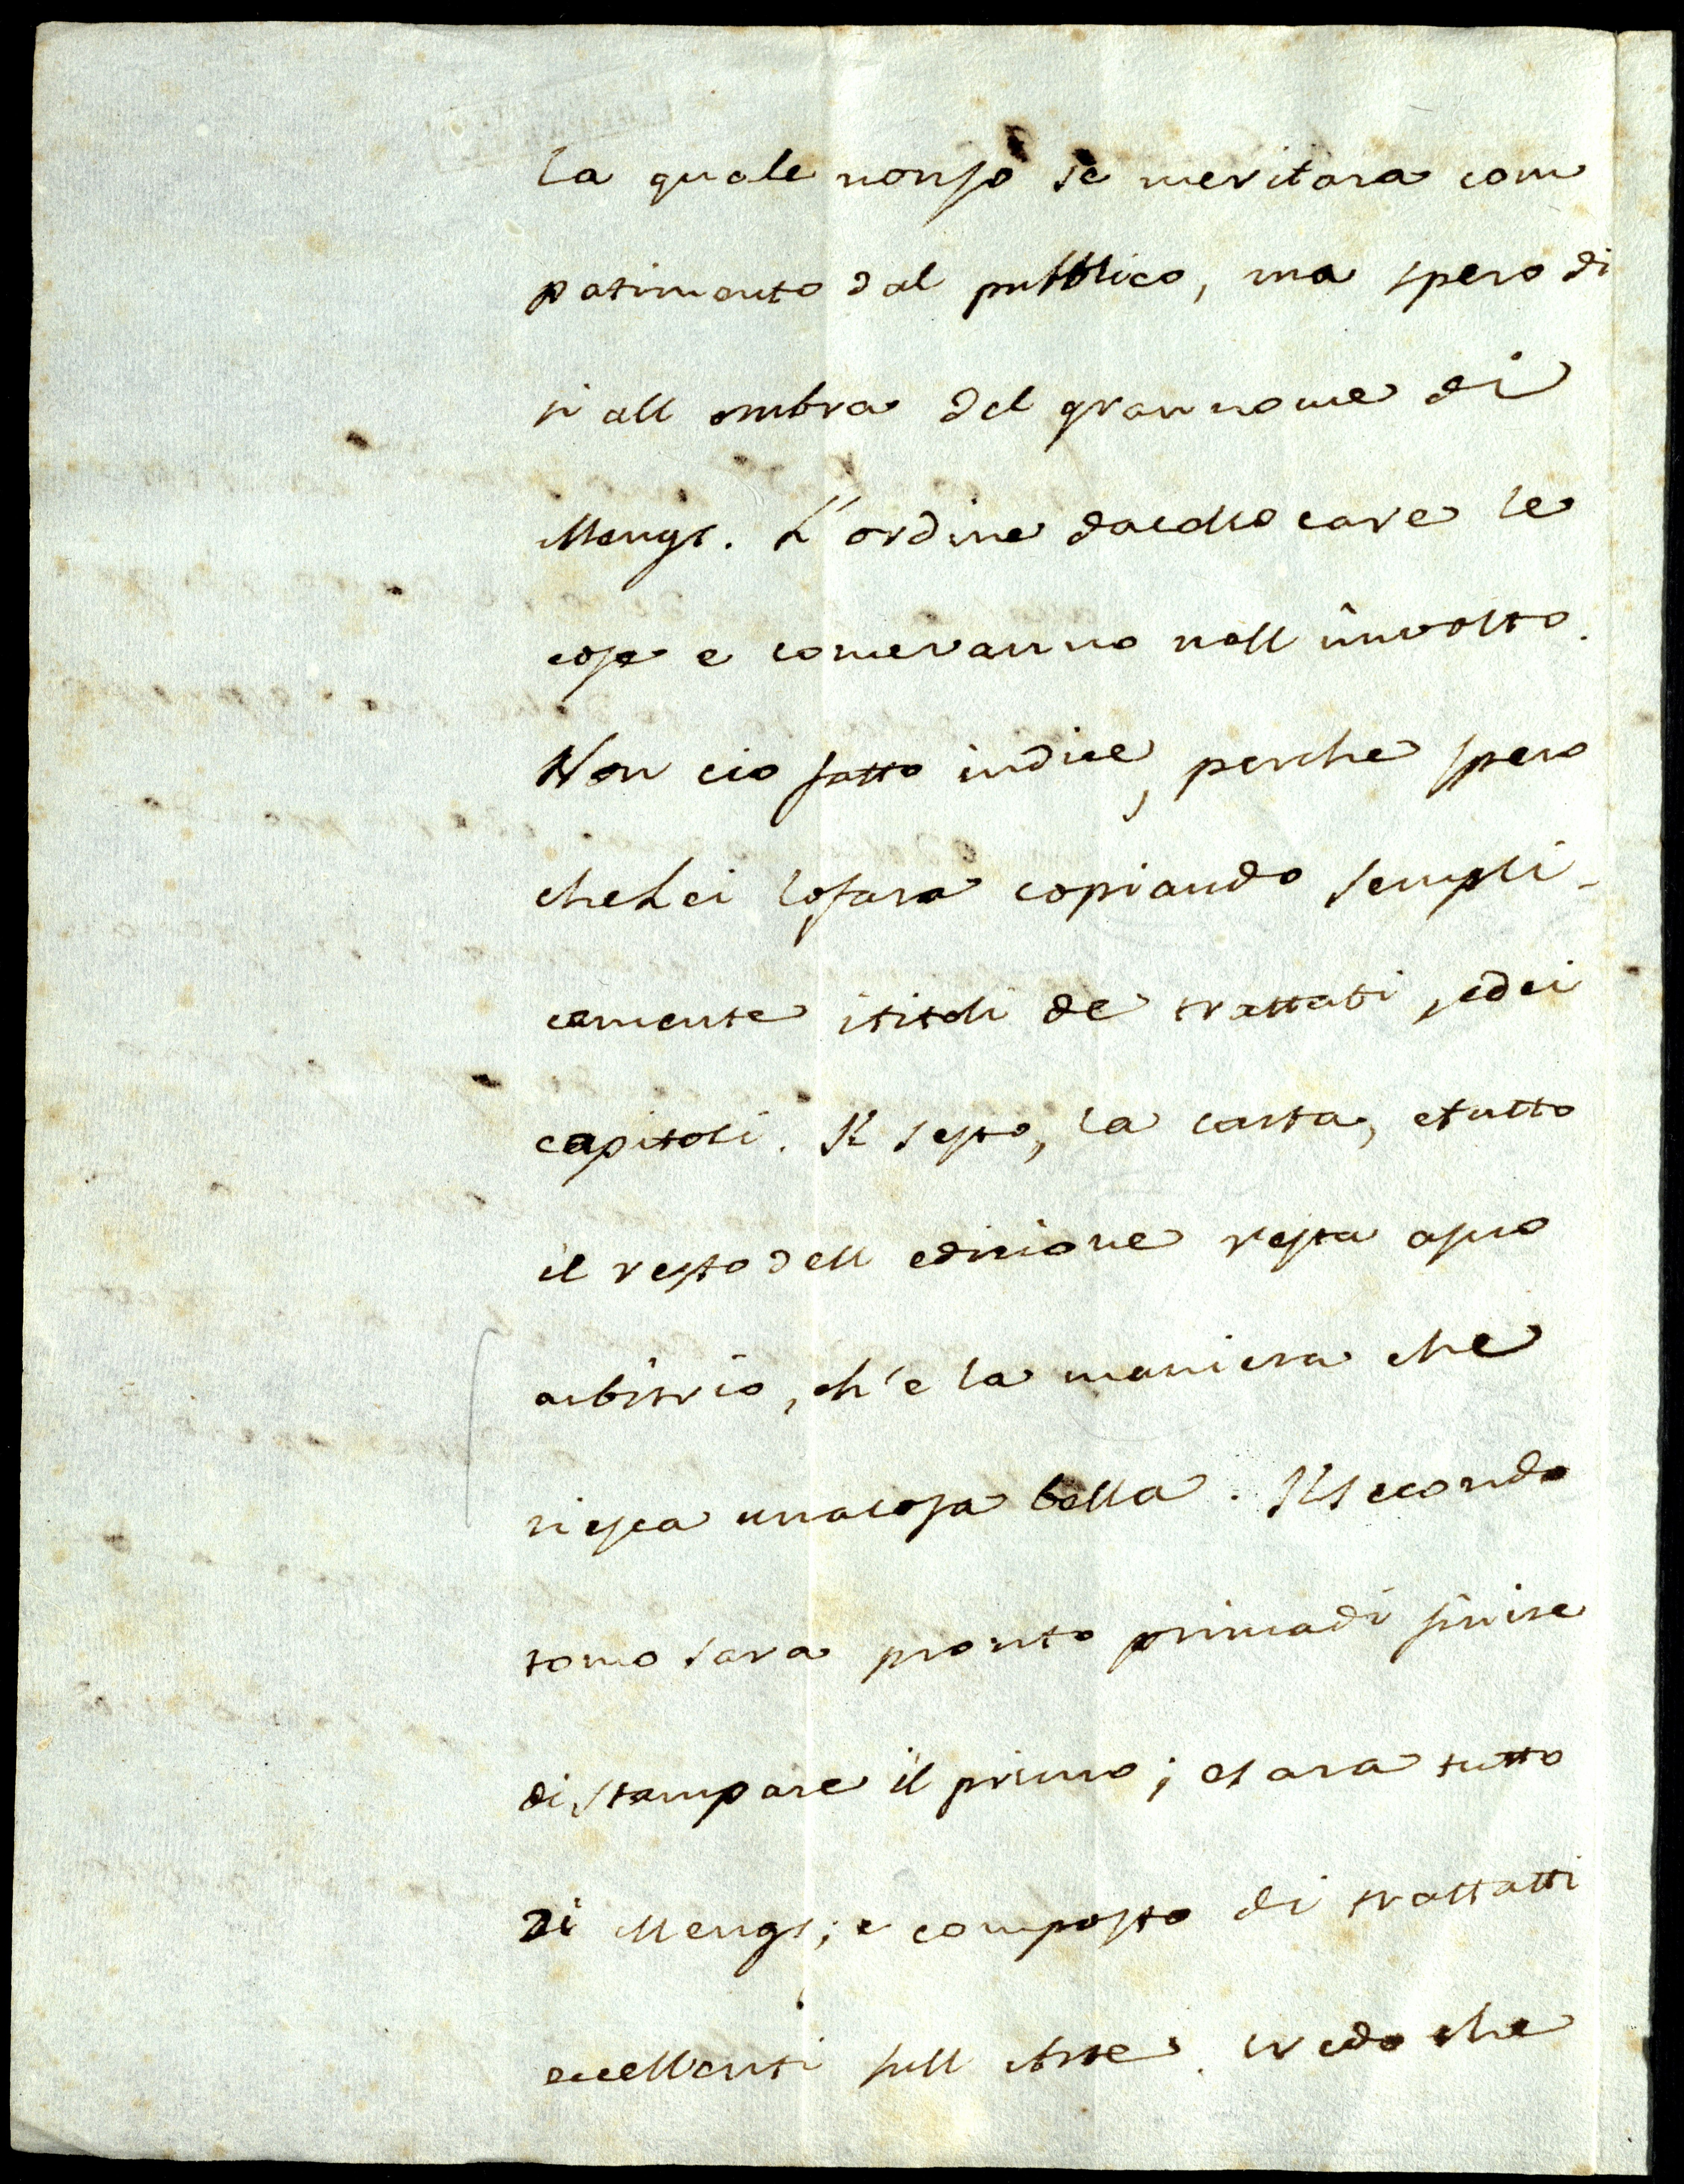 la quale nonso se meritara com
patimento dal pubblico, ma spero di
si all ombra del gran nome di
Mengs. L'ordine dacollocare le
cose e comevanno nell involto.
Non cio fatto indice, perche spero
cheLei lofara copiando sempli-
camente ititoli de trattati, edei
capitoli. Il sesto, la carta, etutto
il resto dell edizione resta asuo
arbitrio, ch'e la maniera che
riesca unacosa bella. Ilsecondo
tomo sara pronto primadi finire
di stampare il primo; esara tutto
di Mengs; e composto di trattatti
eccellenti sull Arte. credo che